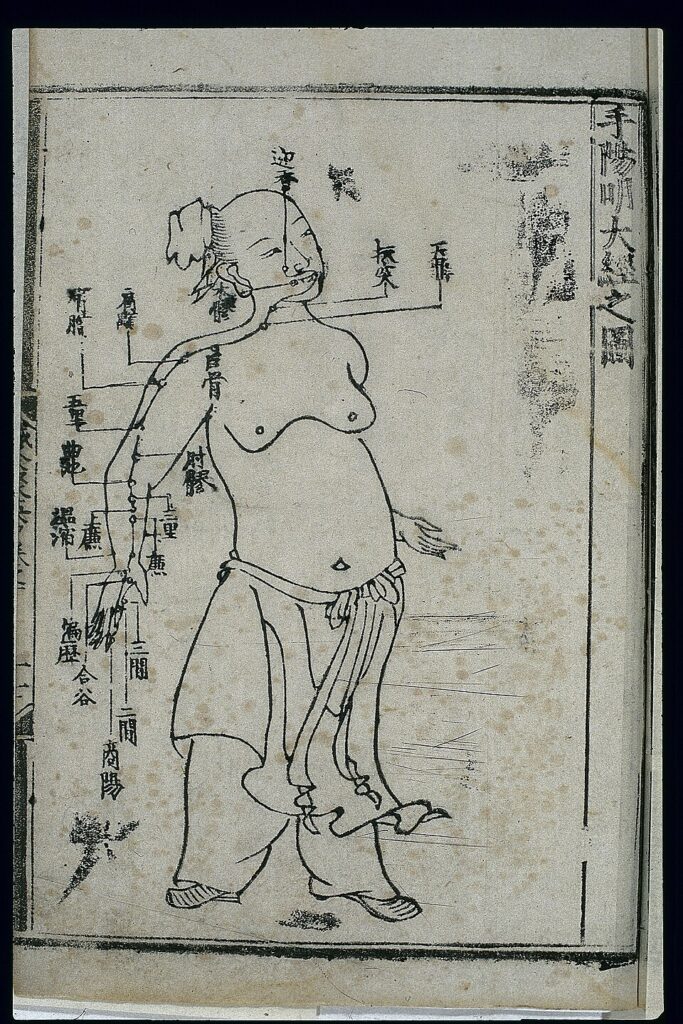 手陽明大經之圖
迎香
天鼎
扶突
禾髎
巨骨
肩髃
臂臑
五里
肘髎
曲池
三里
上廉
下廉
溫溜
偏歷
合谷
三間
二間
商陽